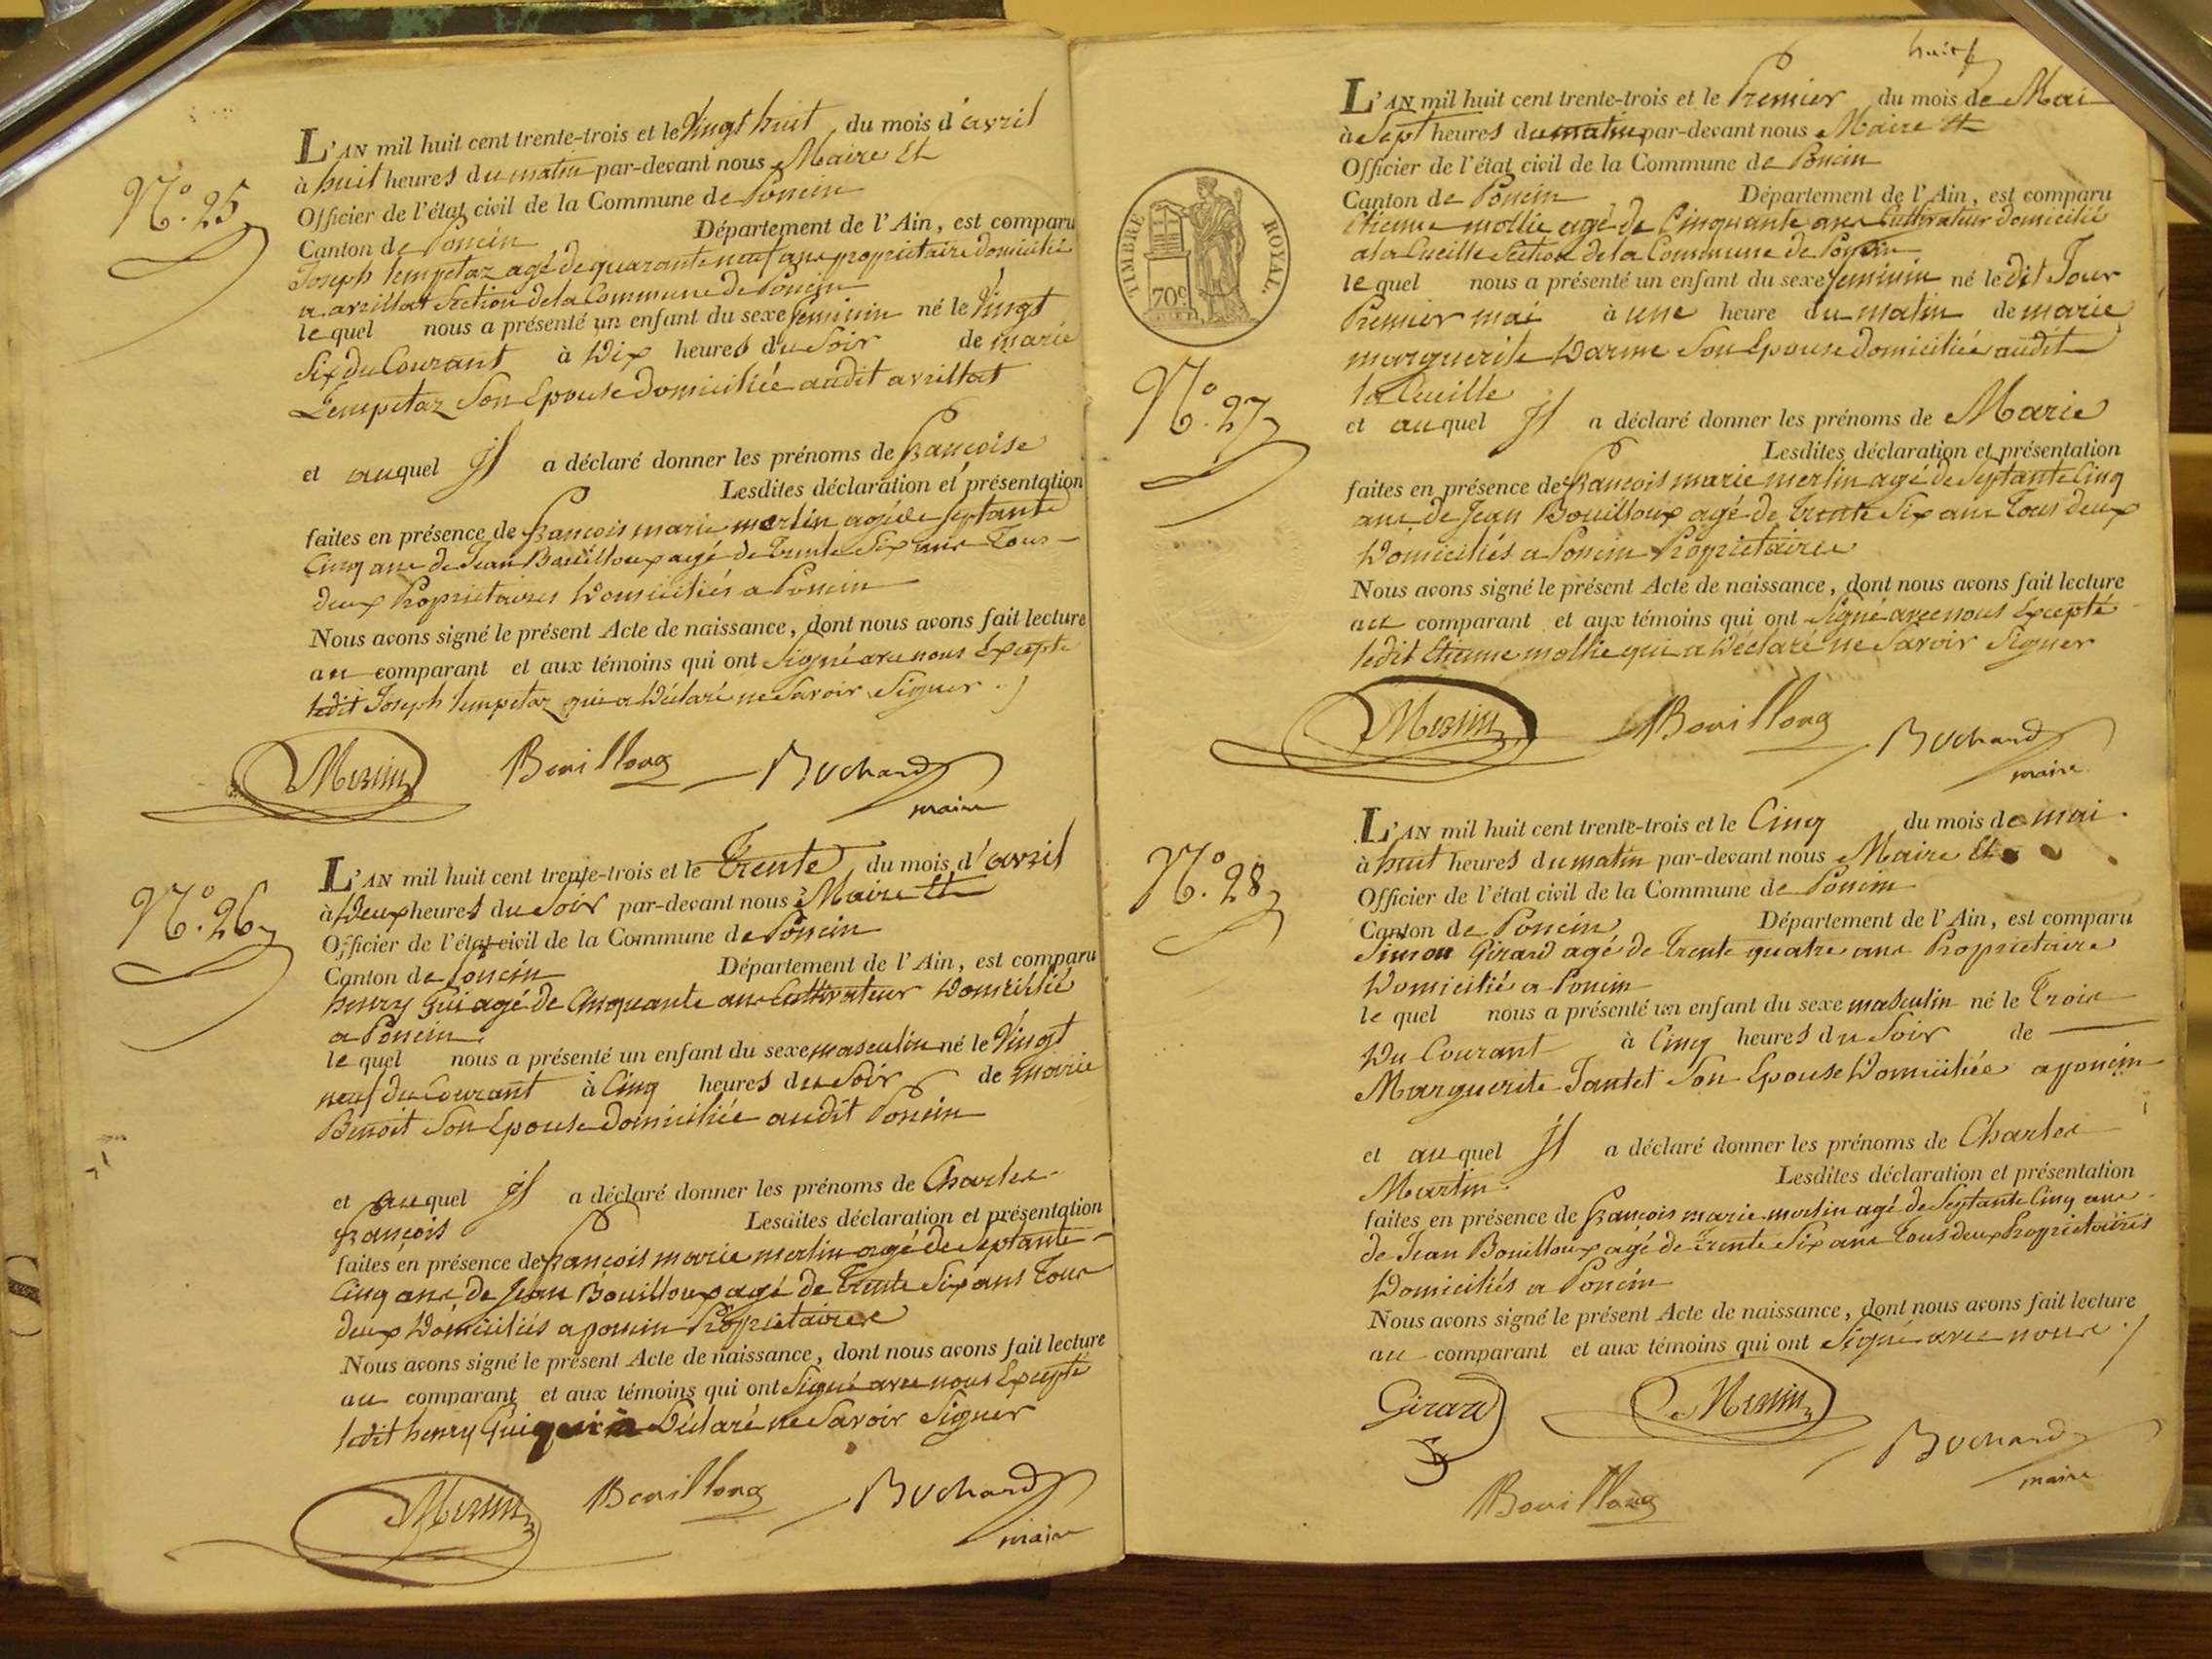 N.° 25
L'AN mil huit cent trente-trois et le Vingt huit du mois d'avril
à huit heures du matin par-devant nous Maire Et
Officier de l'état civil de la Commune de Poncin
Canton de Poncin Département de l'Ain, est comparu
Joseph Tempetaz agé de quarante neuf ans propriétaire domicilié
a avrillat Section de la Commune de Poncin
le quel nous a présenté un enfant du sexe feminin né le Vingt
Six du Courant à Dix heures du Soir de marie
Tempetaz Son Epouse Domiciliée audit avrillat
et auquel Il a déclaré donner les prénoms de françoise
Lesdites déclaration et présentation
faites en présence de françois marie merlin agé de septante
Cinq ans de Jean Bouilloux agé de trente Six ans Tous
deux Propriétaires Domiciliés a Poncin
Nous avons signé le présent Acte de naissance, dont nous avons fait lecture
au comparant et aux témoins qui ont Signé avec nous Excepté
ledit Joseph Tempetaz qui a Déclaré ne Savoir Signer
Merlin Bouilloug Bochard
maire
N.° 26
L'AN mil huit cent trente-trois et le Trente du mois d'avril
à Deux heures du Soir par-devant nous Maire Et
Officier de l'état civil de la Commune de Poncin
Canton de Poncin Département de l'Ain, est comparu
henry Gui agé de Cinquante ans Cultivateur Domicilié
a Poncin
le quel nous a présenté un enfant du sexe masculin né le Vingt
neuf du Courant à Cinq heures du Soir de marie
Benoit Son Epouse Domiciliée audit Poncin
et auquel Il a déclaré donner les prénoms de Charles
françois Lesdites déclaration et présentation
faites en présence de françois marie merlin agé de Septante
Cinq ans de Jean Bouilloux agé de trente Six ans Tous
deux Domiciliés a poncin Propriétaires
Nous avons signé le présent Acte de naissance, dont nous avons fait lecture
au comparant et aux témoins qui ont Signé avec nous Excepté
ledit henry Gui qui a Déclaré ne Savoir Signer
Merlin Bouilloug Bochard
maire
huit
TIMBRE ROYAL.
70c
N.° 27
L'AN mil huit cent trente-trois et le Premier du mois de Mai
à Sept heures du matin par-devant nous Maire Et
Officier de l'état civil de la Commune de Poncin
Canton de Poncin Département de l'Ain, est comparu
Etienne mollie agé de Cinquante ans Cultivateur domicilié
a la Cueille Section de la Commune de Poncin
le quel nous a présenté un enfant du sexe feminin né le dit Jour
Premier mai à une heure du matin de marie
marguerite Darme Son Epouse Domiciliée audit
la Cueille
et auquel Il a déclaré donner les prénoms de Marie
Lesdites déclaration et présentation
faites en présence de françois marie merlin agé de Septante Cinq
ans de Jean Bouilloux agé de Trente Six ans Tous deux
Domiciliés a Poncin Propriétaires
Nous avons signé le présent Acte de naissance, dont nous avons fait lecture
au comparant et aux témoins qui ont Signé avec nous Excepté
ledit Etienne mollie qui a Déclaré ne Savoir Signer
Merlin Bouilloug Bochard
maire
N.° 28
L'AN mil huit cent trente-trois et le Cinq du mois de mai
à huit heures du matin par-devant nous Maire Et
Officier de l'état civil de la Commune de Poncin
Canton de Poncin Département de l'Ain, est comparu
Simon Girard agé de trente quatre ans Propriétaire
Domicilié a Poncin
le quel nous a présenté un enfant du sexe masculin né le Trois
Du Courant à Cinq heures du Soir de
Marguerite Tantet Son Epouse Domiciliée a poncin
et auquel Il a déclaré donner les prénoms de Charles
Martin Lesdites déclaration et présentation
faites en présence de françois marie merlin agé de Septante Cinq ans
de Jean Bouilloux agé de trente Six ans Tous deux Propriétaires
Domiciliés a Poncin
Nous avons signé le présent Acte de naissance, dont nous avons fait lecture
au comparant et aux témoins qui ont Signé avec nous
Girard Merlin
Bochard
maire
Bouilloug